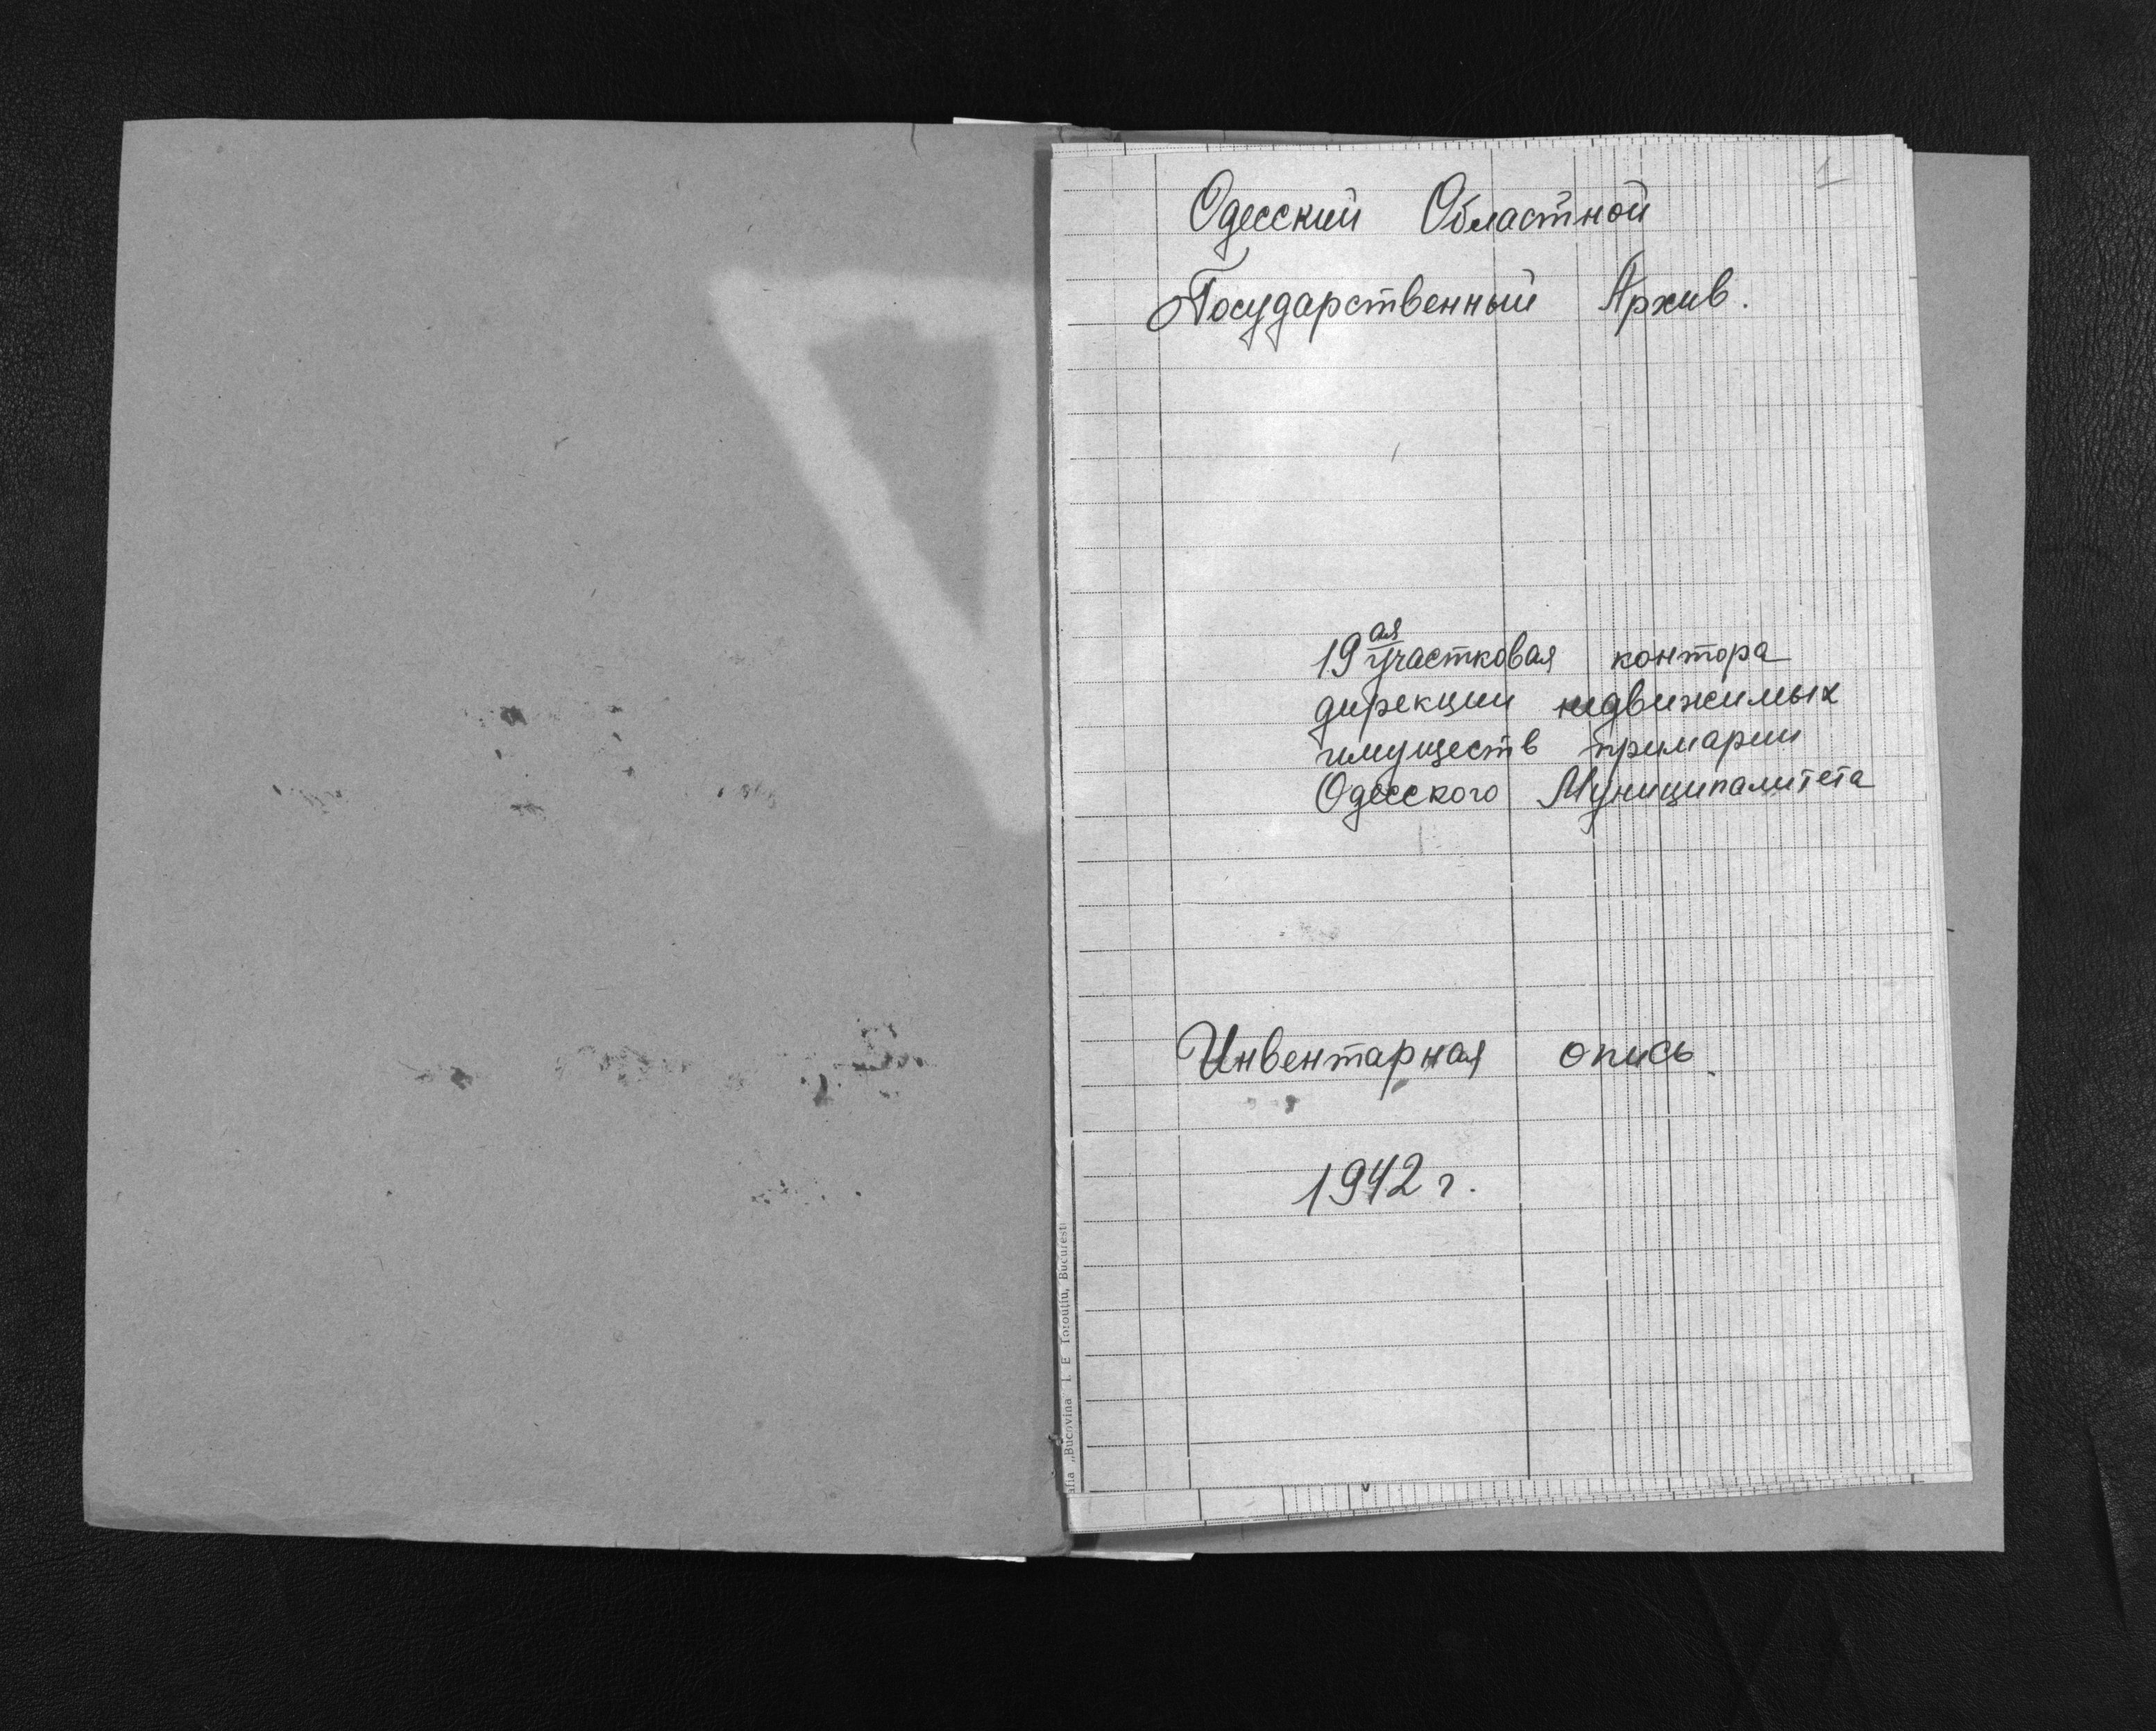 1
Одесский Областной
Государственный Архив.
19ая участковая контора
дирекции недвижимых
имуществ примарии
Одесского Муниципалитета
Инвентарная опись.
1942 г.
„Bucovina I. E Toroutiu, Bucuresti